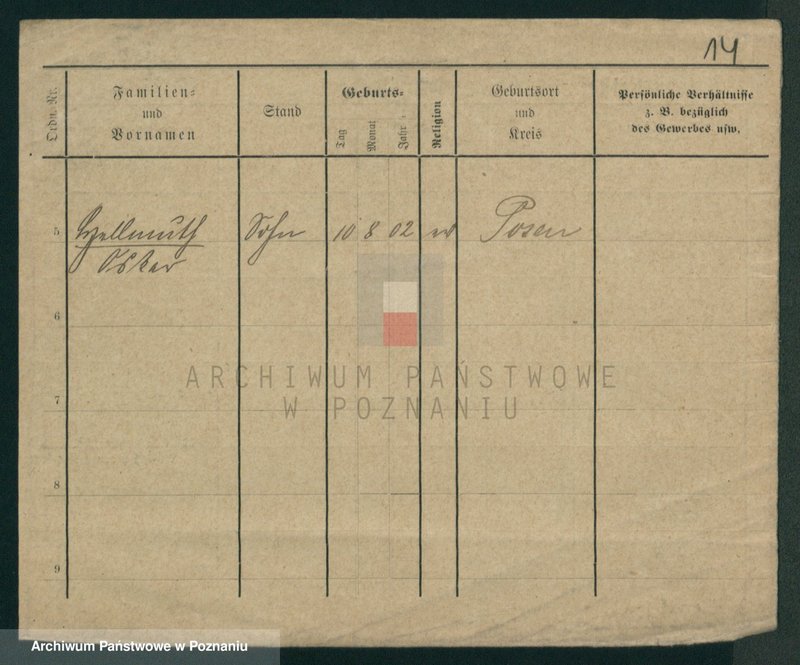 14
Ordn. Nr.
Familien=
und
Vornamen
Stand
Geburts=
Tag
Monat
Jahr
Religion
Geburtsort
und
Kreis
Persönliche Verhältnisse
z. B. bezüglich
des Gewerbes usw.
5 Hellmuth Sohn 10 8 02 ev Posen
Oskar
6
7
8
9
ARCHIWUM PAŃSTWOWE
W POZNANIU
Archiwum Państwowe w Poznaniu